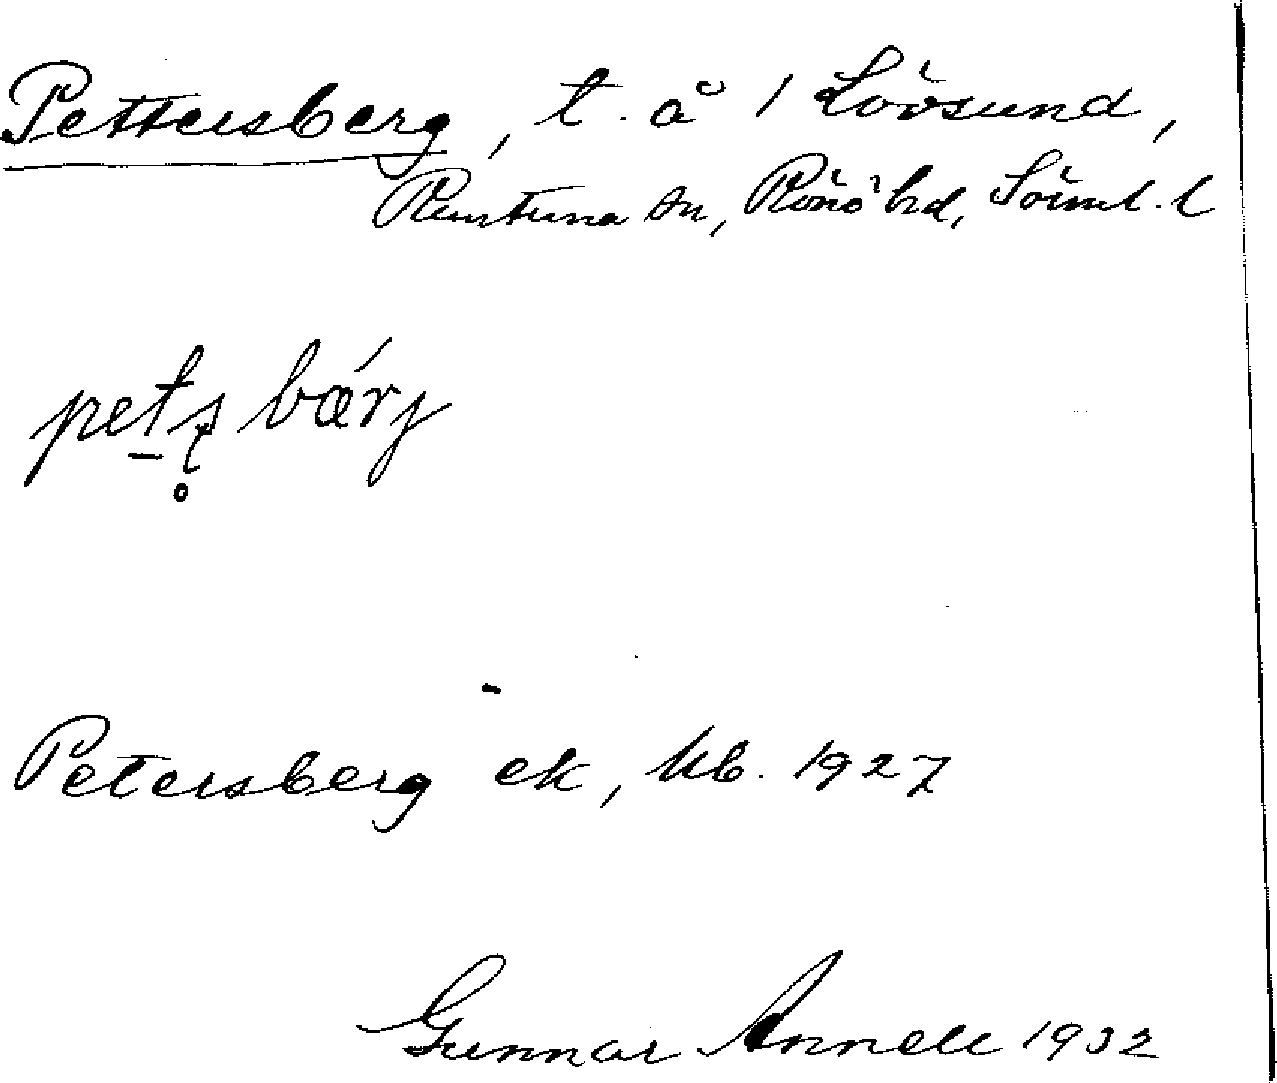 Pettersberg, t. å 1 Lövsund,
Runtuna sn, Rönö hd, Söml. l
pets̥ bárj
Petersberg ek, kb. 1927
Gunnar Annell 1932